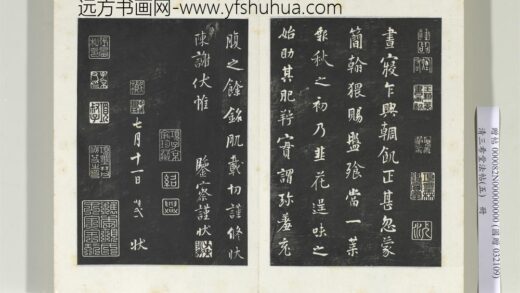 远方书画网-www.yfshuhua.com
晝寢乍興朝飢正甚忽蒙
簡翰猥賜盤飧當一葉
報秋之初乃韭花逞味之
始助其肥羜實謂珍羞充
腹之餘銘肌載切謹修狀
陳謝伏惟
鑒察謹狀
七月十一日 狀
贈帖 000082N000000000 (國贈 032109)
清三希堂法帖(五) 冊